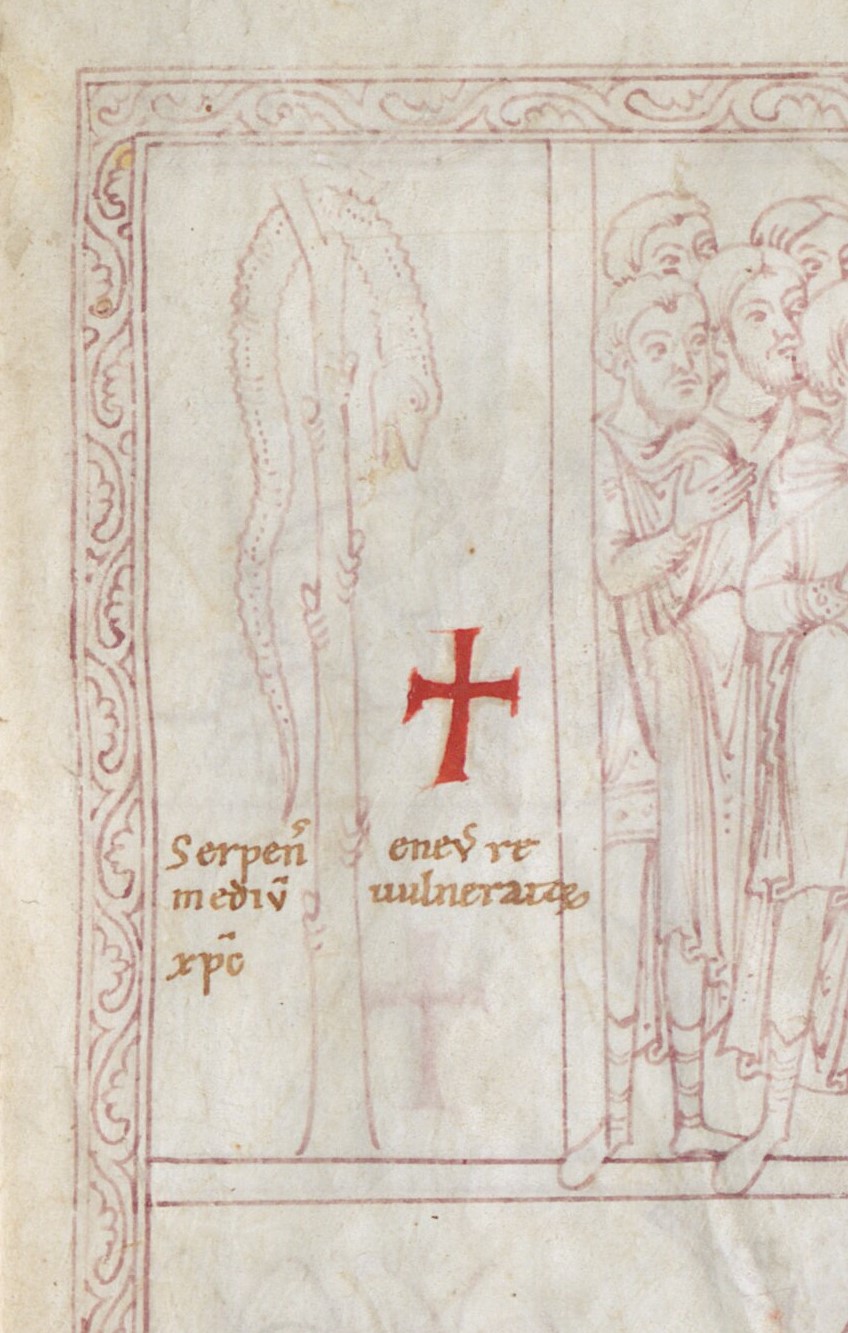 Serpenˢ enevˢ re
mediv̄ uulneratoꝝ
xp̄c